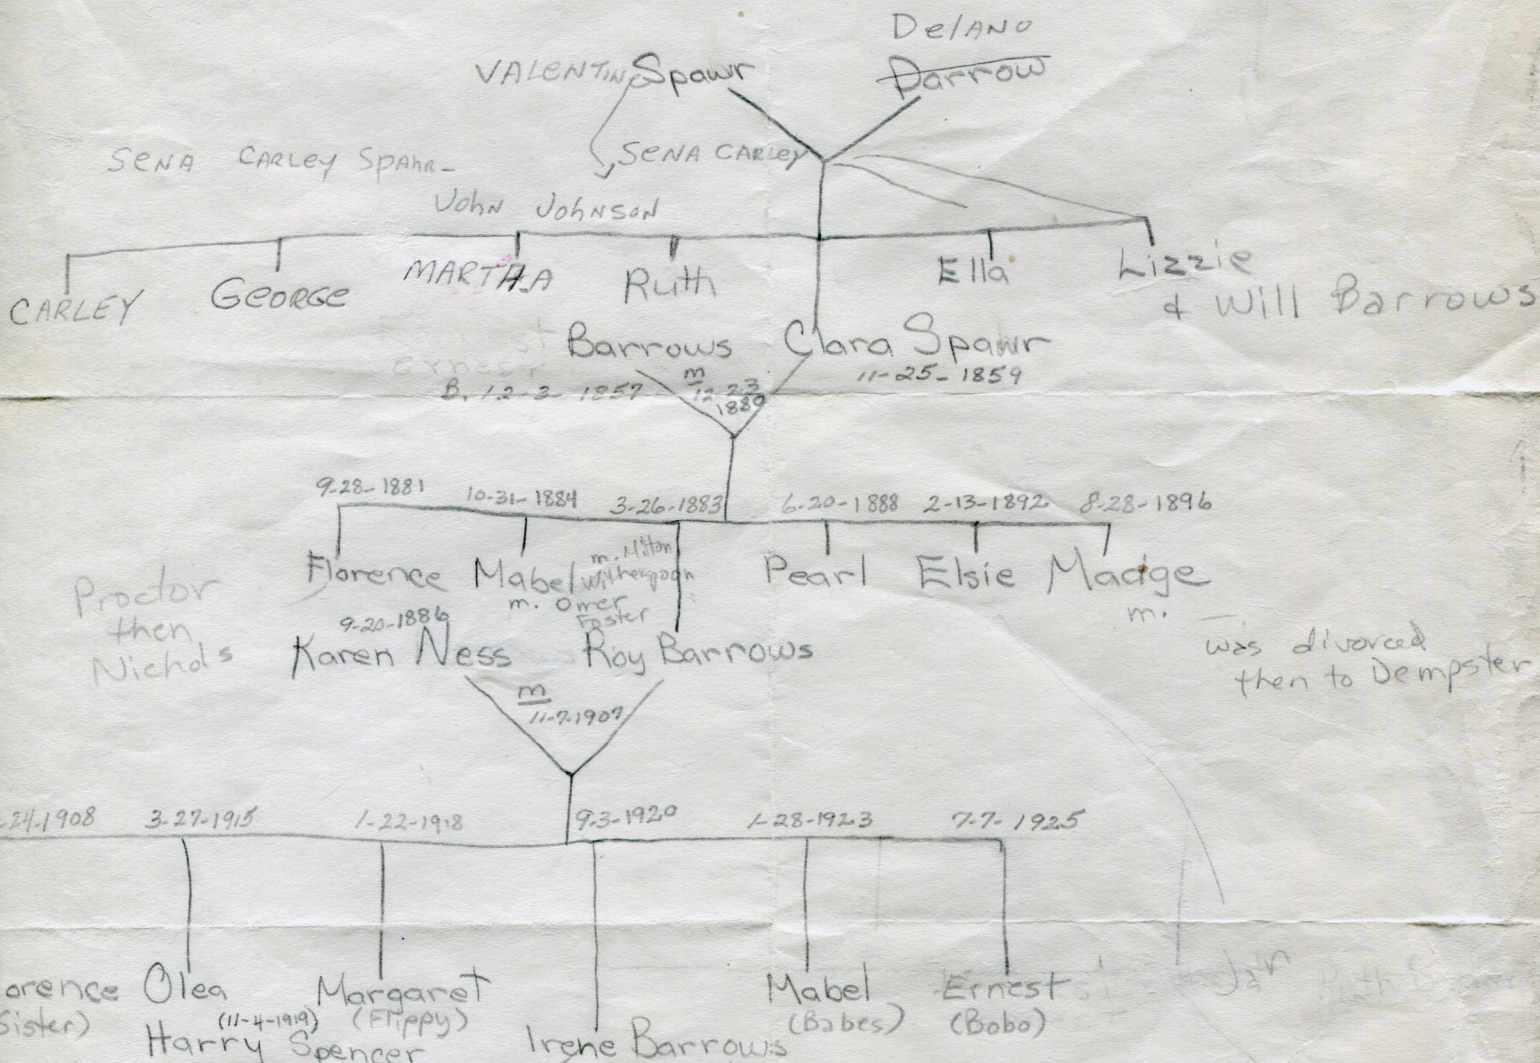 DelANO
VALENTIN Spawr Darrow
SENA CARLEY SPAHR- SENA CARLEY
John Johnson
CARLEY GEORGE MARTHA Ruth Ella Lizzie
& Will Barrows
Barrows Clara Spawr
B. 12-3-1857 m 12-23 1880 11-25-1859
9-28-1881 10-31-1884 3-26-1883 6-20-1888 2-13-1892 8-28-1896
Florence Mabel m. Milton Witherspoon Pearl Elsie Madge
m. Omer Foster m.
Proctor
then
Nichols
9-20-1886
Karen Ness Roy Barrows
was divorced
then to Dempster
m
11-7-1907
24-1908 3-27-1915 1-22-1918 9-3-1920 1-28-1923 7-7-1925
orence Olea Margaret Mabel Ernest
Sister) (11-4-1919) (Flippy) (Babes) (Bobo)
Harry Spencer Irene Barrows